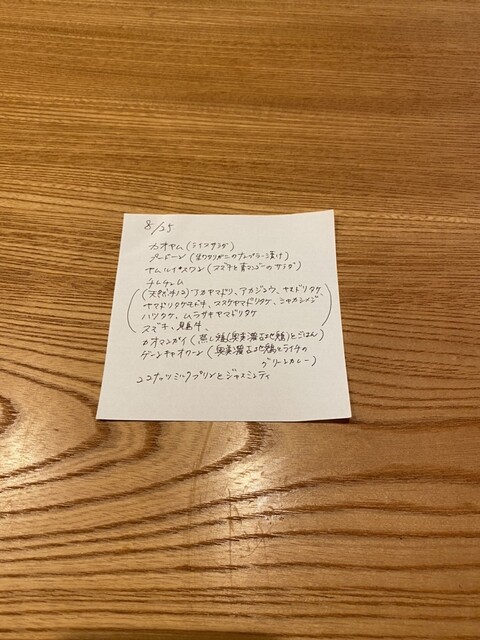 8/25
カオヤム (ライスサラダ)
プードーン (渡りガニのナンプラー漬け)
ヤムルイスワン (スズキと青マンゴーのサラダ)
チムチュム
(天然キノコ) アカヤマドリ、アカジコウ、ヤマドリタケ、
ヤマドリタケモドキ、ススケヤマドリタケ、シャカシメジ、
ハツタケ、ムラサキヤマドリタケ
スズキ、見島牛、
カオマンガイ (蒸し鶏(奥美濃古地鶏)とごはん)
ゲーンキャオワーン (奥美濃古地鶏とライチの
グリーンカレー)
ココナッツミルクプリンとジャスミンティ